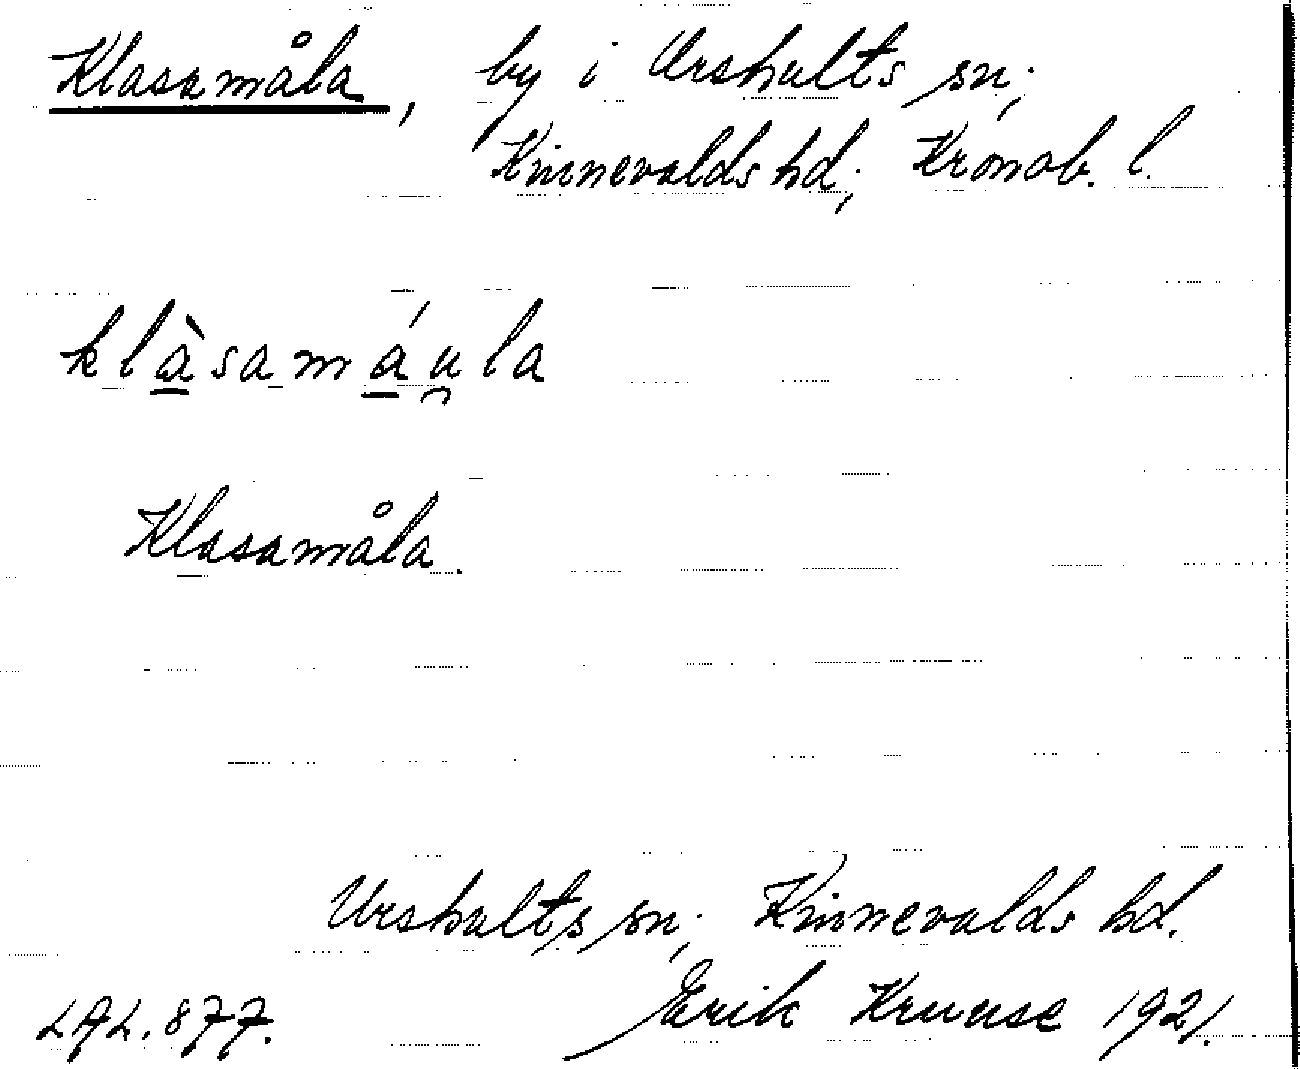 Klasamåla, by i Urshults sn;
Kinnevalds hd; Kronob. l.
klàsamáu̯la
Klasamåla.
Urshults sn; Kinnevalds hd.
LAL. 877. Erik Kruuse 1921.